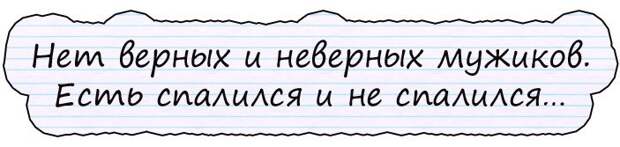 Нет верных и неверных мужиков.
Есть спалился и не спалился...